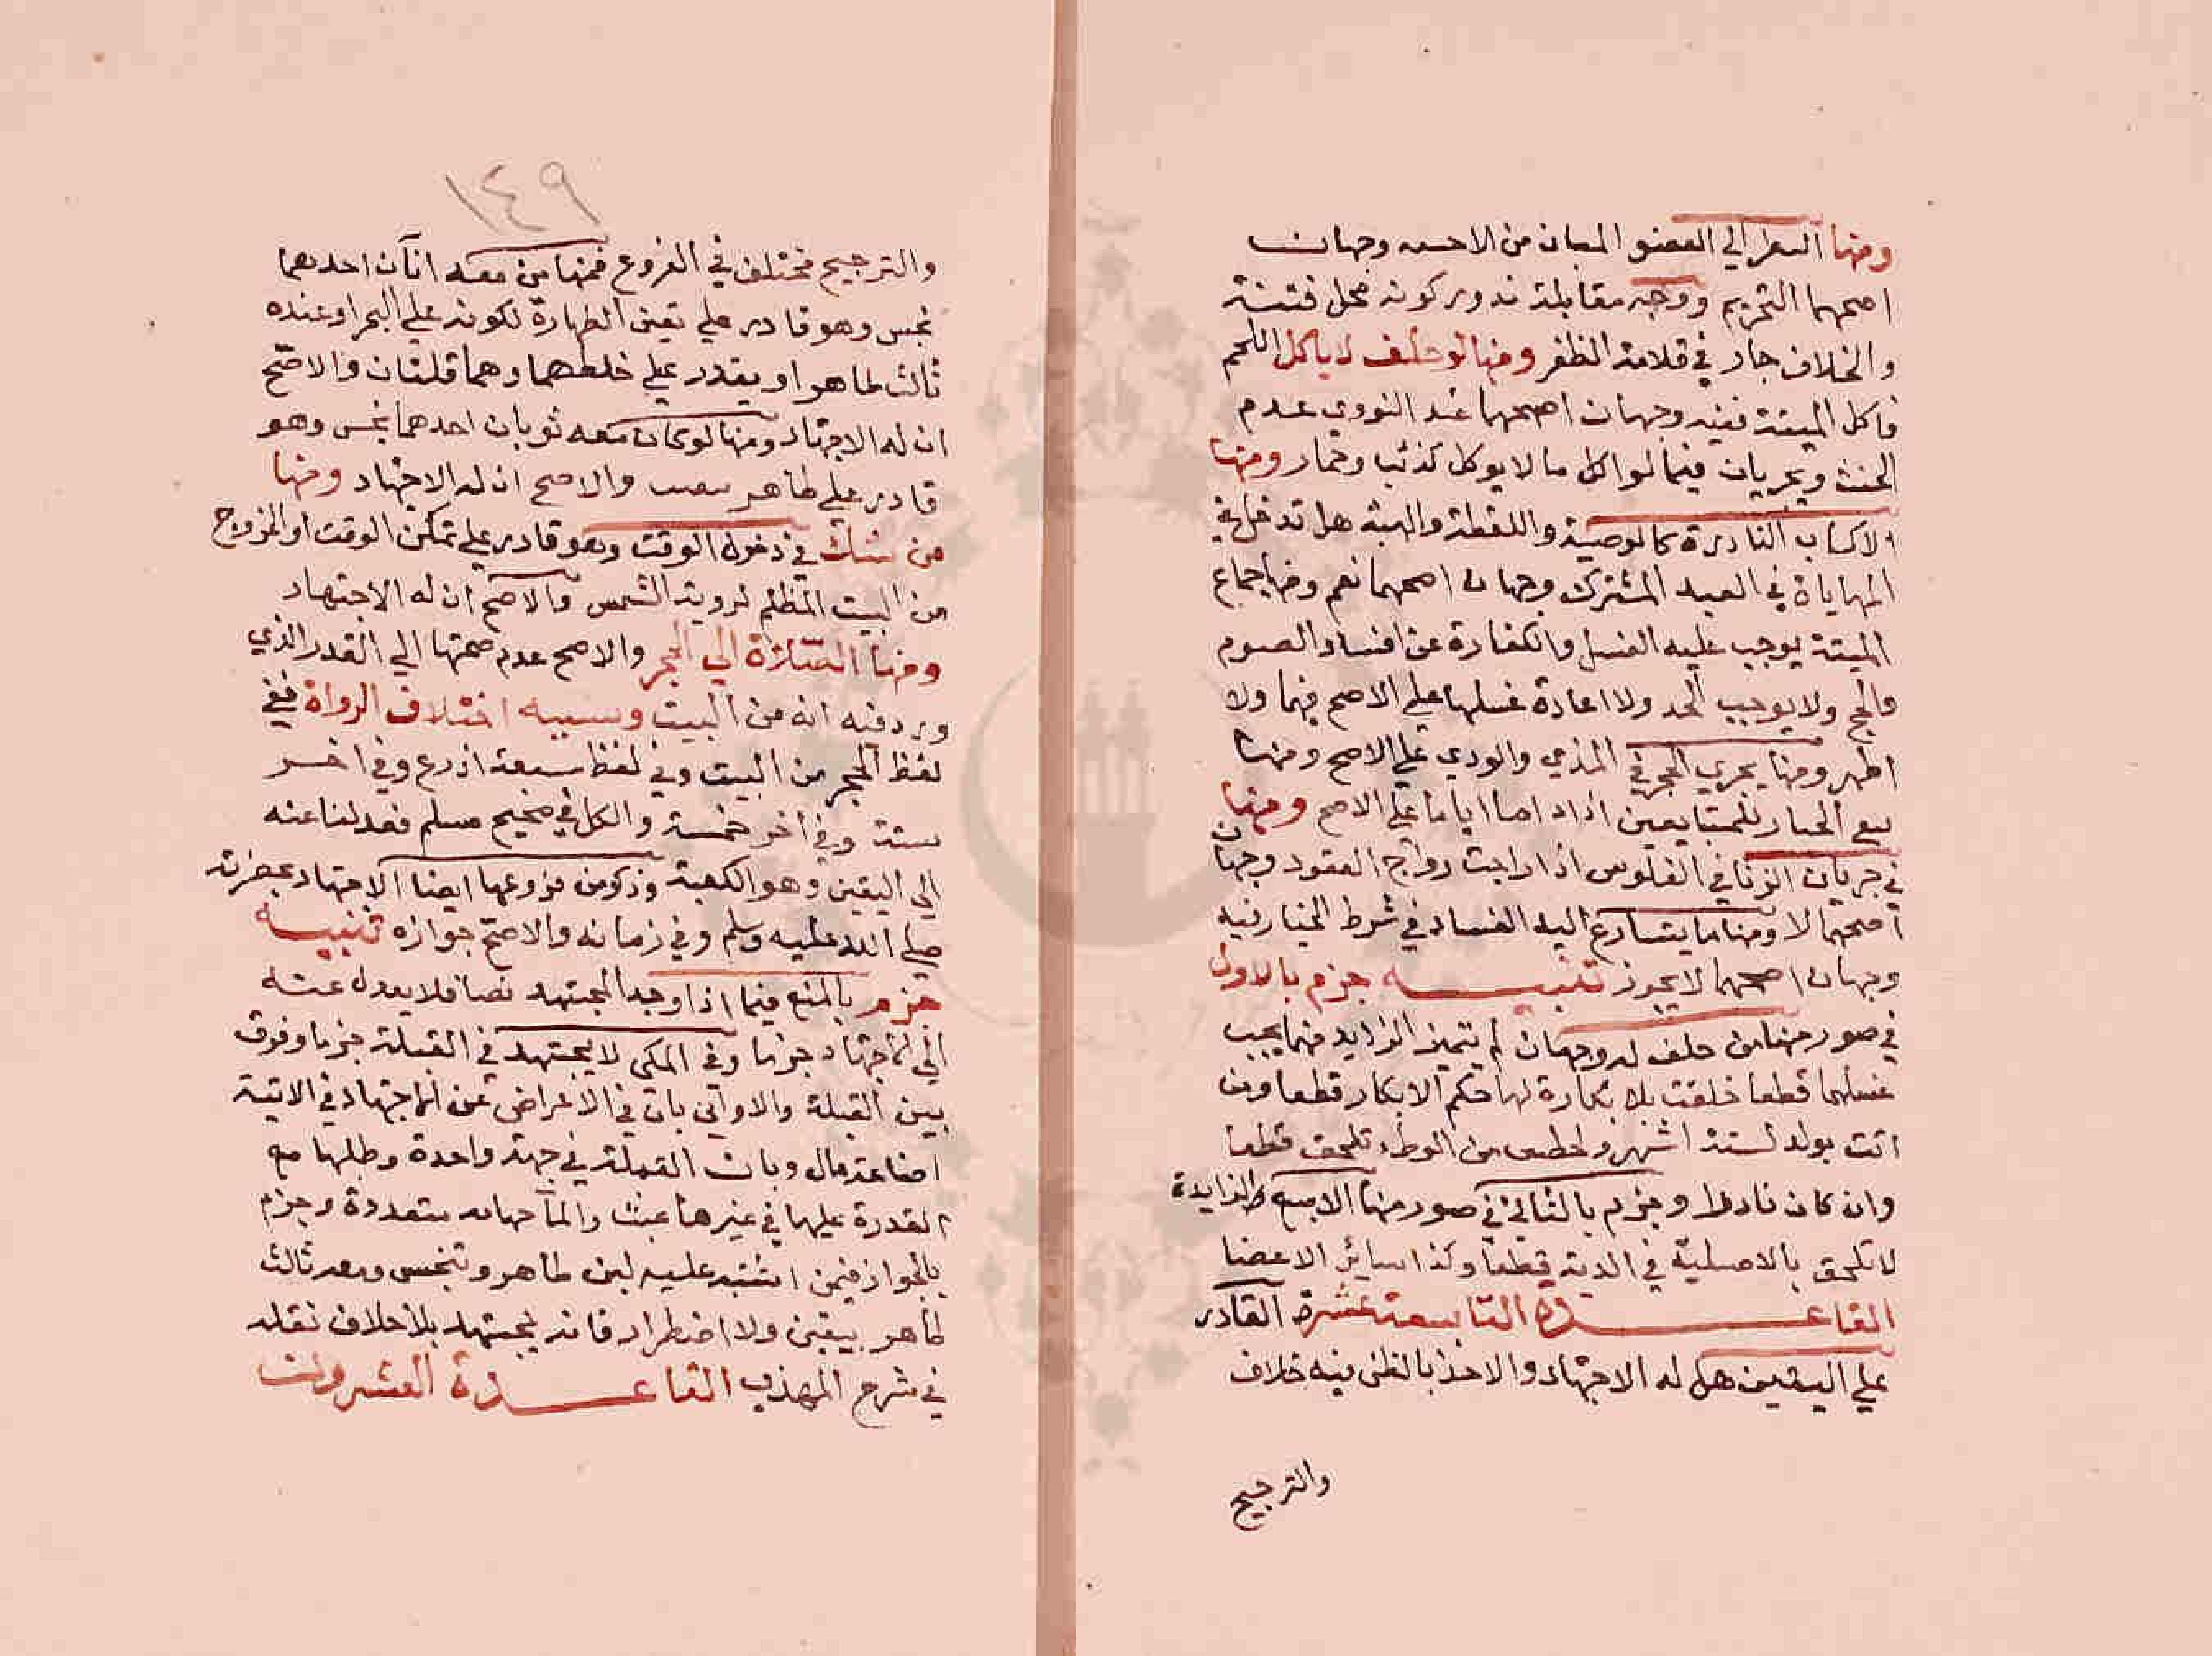 ومنها النظر الي العضو المبان من الاجنبية وجهان
اصحهما التحريم ووجه مقابله ندور كونه محل فتنة
والخلاف جار في قلامة الظفر ومنها لو حلف لا ياكل اللحم
فاكل الميتة ففيه وجهان اصحهما عند النووي عدم
الحنث ويجريان فيما لو اكل ما لا يوكل كذئب وحمار ومنها
الاكساب النادرة كالوصية واللقطة والهبة هل تدخل في
المهاياة في العبد المشترك وجهان اصحهما نعم ومنها جماع
الميتة يوجب عليه الغسل والكفارة عن افساد الصوم
والحج ولا يوجب الحد ولا اعادة غسلها علي الاصح فيها ولا
المهر ومنها يجري الحجر في المذي والودي علي الاصح ومنها
يبقي الخيار للمتبايعين اذا داما اياما علي الاصح ومنها
في جريان الربا في الفلوس اذا راجت رواج النقود وجهان
اصحهما لا ومنها ما يتسارع اليه الفساد في شرط الخيار فيه
وجهان اصحهما لا يجوز تنبيه جزم بالاول
في صور منها من خلف له وجهان لم يتميز الزايد منهما يجب
غسلهما قطعا خلقت بلا بكارة لها حكم الابكار قطعا ومن
اتت بولد لستة اشهر ولحظتين من الوطء تلحق قطعا
وان كان نادرا وجزم بالثاني في صور منها الاصبع الزايدة
لا تلحق بالاصلية في الدية قطعا وكذا سائر الاعضا
القاعدة التاسعة عشرة القادر
علي اليقين هل له الاجتهاد والاخذ بالظن فيه خلاف
والترجيح
١٤٩
والترجيح مختلف في الفروع فمنها من معه اناآن احدهما
نجس وهو قادر علي يقين الطهارة لكونه علي البحر او عنده
ثالث طاهر او يقدر علي خلطهما وهما قلتان والاصح
ان له الاجتهاد ومنها لو كان معه ثوبان احدهما نجس وهو
قادر علي طاهر بيقين والاصح ان له الاجتهاد ومنها
من شك في دخول الوقت وهو قادر علي تمكن الوقت او الخروج
من البيت المظلم لروية الشمس والاصح ان له الاجتهاد
ومنها الصلاة الي الحجر والاصح عدم صحتها الي القدر الذي
ورد فيه انه من البيت وسببه اختلاف الرواة ففي
لفظ الحجر من البيت وفي لفظ سبعة اذرع وفي اخر
ستة وفي اخر خمسة والكل في صحيح مسلم فعدلنا عنه
الي اليقين وهو الكعبة وذكر من فروعها ايضا الاجتهاد بحضرته
صلي الله عليه وسلم وفي زمانه والاصح جوازه تنبيه
جزم بالمنع فيما اذا وجد المجتهد نصا فلا يعدل عنه
الي الاجتهاد جزما وفي المكي لا يجتهد في القبلة جزما وفرق
بين القبلة والاواني بان في الاعراض عن الاجتهاد في الانية
اضاعة مال وبان القبلة في جهة واحدة وطلبها مع
القدرة عليها في غيرها عبث والما جهاته متعددة وجزم
بالجواز فيمن اشتبه عليه لبن طاهر وتنجس ومعه ثالث
طاهر بيقين ولا اضطرار فانه يجتهد بلا خلاف نقله
في شرح المهذب القاعدة العشرون